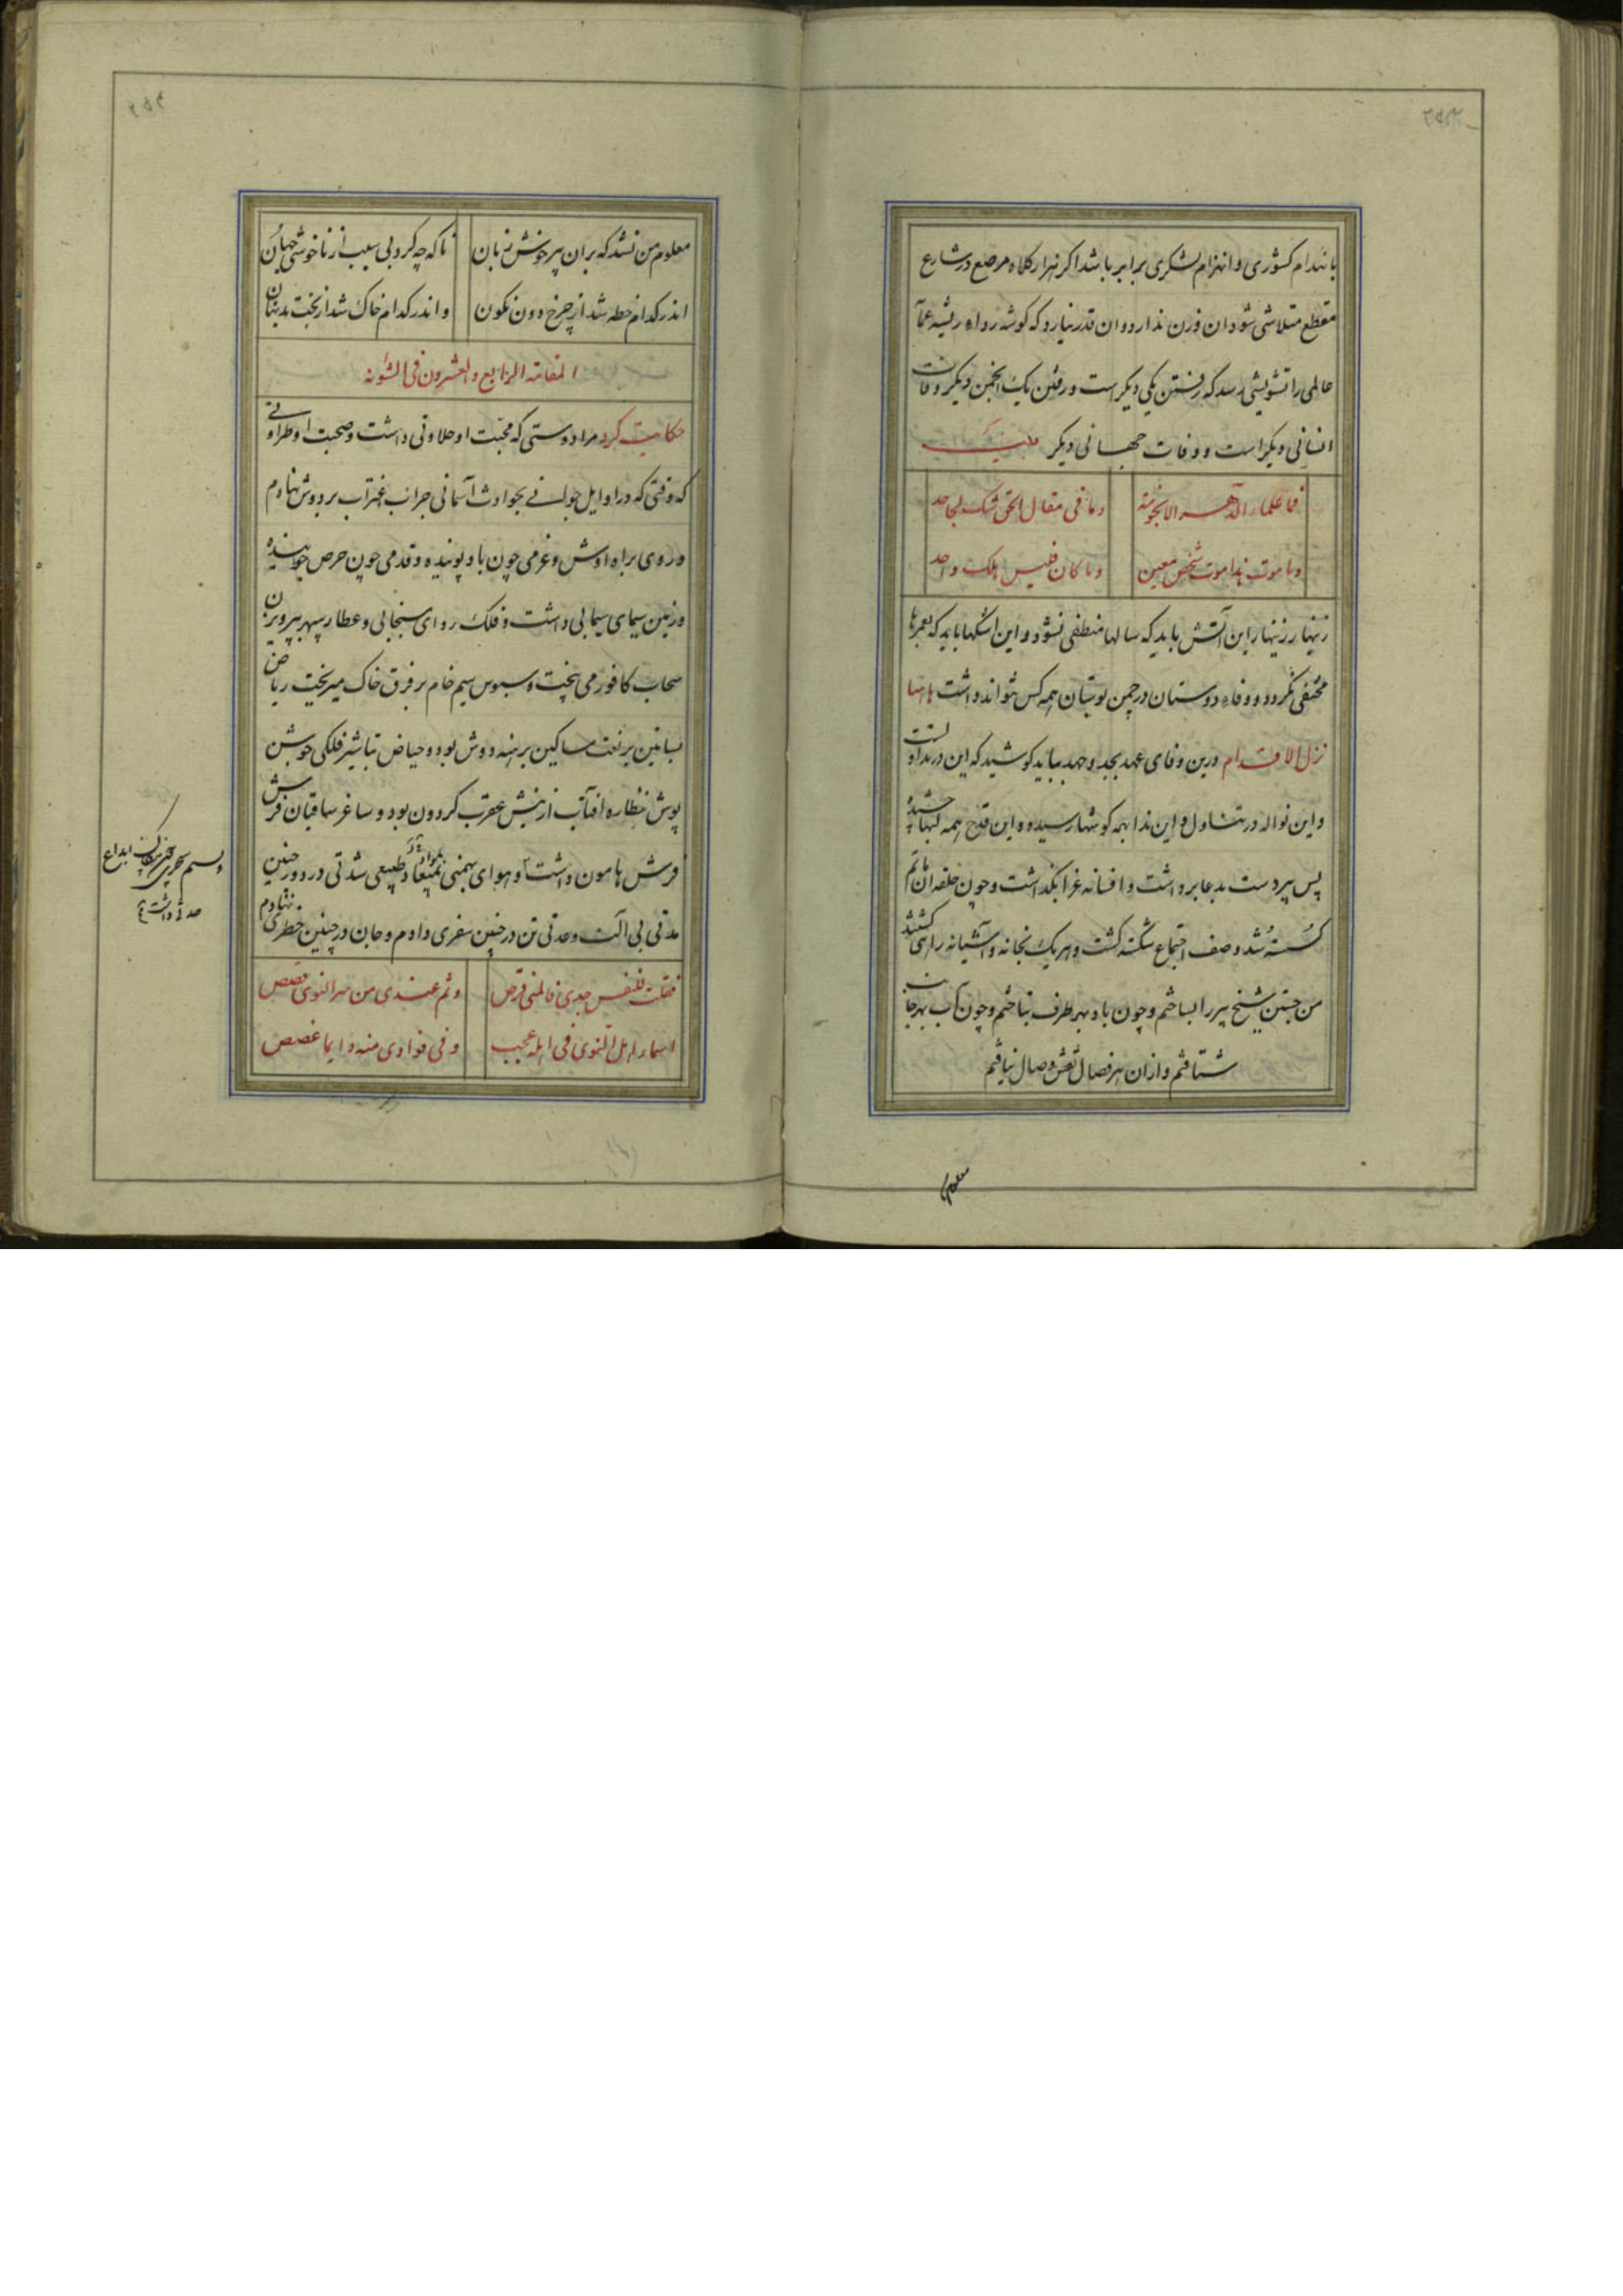 بانهدام کشوری و انهزام لشکری برابر باشد اکر هزار کلاه مرصع در شارع
مقطع متلاشی شود ان وزن ندارد و ان قدر نیارد که کوشه رداء ریشه عما
عالمی را تشویشی رسد که رفتن یکی دیکر است و رفتن یک انجمن دیکر وفات
انسانی دیکر است و وفات جهانی دیکر
فما علماء الدهر الا نجومه
وما فی مقال الحق شک لجاحد
وما موت هذا موت شخص معین
وما کان قلیس هلک واحد
زینهار زینهار این آتش باید که سالها منطفی نشود و این اشکها باید که بعمرها
مختفی نکردد و وفاء دوستان در چمن بوستان همه کس تواند داشت هاهنا
تزل الاقدام درین وفای عهد بجد و جهد بباید کوشید که این در
و این نواله در تناول و این ندا بهمه کوشها رسیده و این قدح همه لبها چشیده
پس پیر دست بدعا برداشت و افسانه غرا بگذاشت و چون حلقه ان ماتم
کسسته شد و صف اجتماع شکسته کشت و هر یک بخانه و آشیانه راهی کشتند
من جستن شیخ پیر را بساختم و چون باد بهر طرف بتاختم و چون آب بهر جانب
شتافتم و ازان هنر فصال نقش وصال نیافتم
معلوم
معلوم من نشد که بران پیر خوش زبان
تا که چه کرد بی سبب از ناخوشی جهان
اندر کدام خطه شد از چرخ دون نکون
و اندر کدام خاک شد از بخت بد نهان
المقامة الرابع والعشرون فی الشوته
حکایت کرد مرا دوستی که محبت او حلاوتی داشت و صحبت او طراوتی
که وقتی که در اوایل جوانی بحوادث آسمانی جراب اغتراب بر دوش نهادم
و روی براه اوش و عزمی چون باد پوینده و قدمی چون حرص جوینده
و زمین سیمای سیمابی داشت و فلک ردای سنجابی و عطار سپهر بپرویزن
سحاب کافور می بیخت و سبوس سیم خام بر فرق خاک میریخت ریاض
بساتین برنک مساکین برهنه دوش بود و حیاض تباشیر فلکی جوشن
پوش نظاره افتاب از نیش عقرب کردون بود و ساغر ساقیان فرش
فرش هامون داشت و هوای بهمنی طبیعی شدتی در دور چنین
مدتی بی آلت و عدتی تن در چنین سفری دادم و جان در چنین خطری نهادم
فقلت للنفس جدی فالمنی فرص
وثم عندی من سر النوی قصص
اسمار اهل النوی فی اهله عجب
وفی فوادی منه دایما غصص